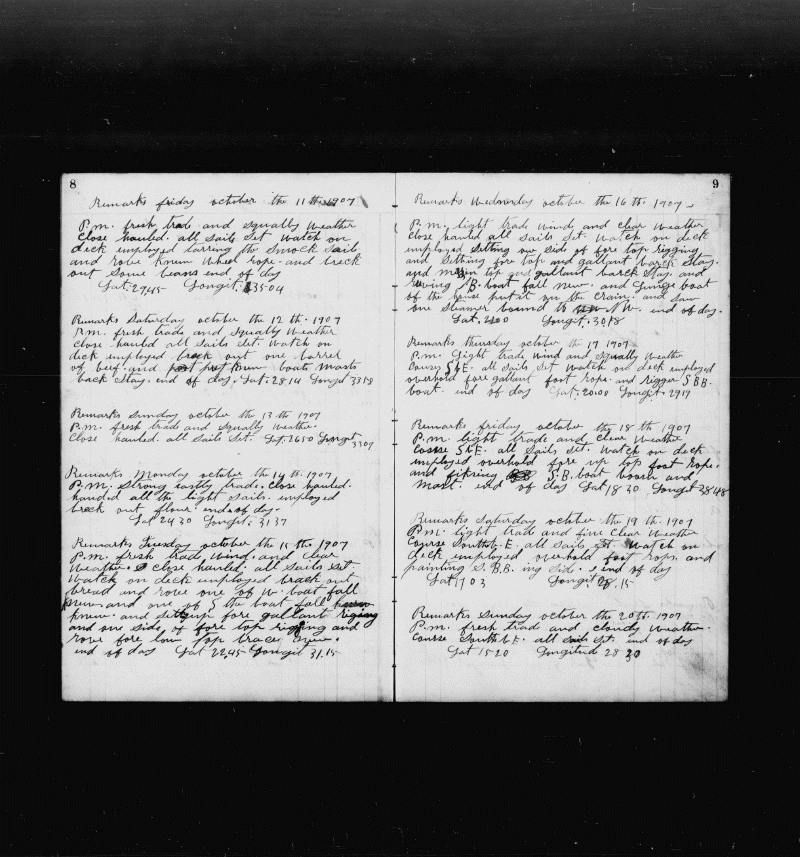 8
Remarks friday october the 11 th. 1907
P.m. fresh trade and squally weather
close hauled. all sails set. watch on
deck employed tarring the smock sails
and rove knew wheel rope. and breck
out some beans end of day
Lat. 27,45 Longit. 35-04
Remarks Saturday october the 12 th. 1907
P.m. fresh trade and squally weather
close hauled all sails set. watch on
deck employed breck out one barrel
of beef and put knew boats masts
back stay. end of day. Lat. 2814 Longit 3318
Remarks Sunday october the 13 th 1907
P.m. fresh trade and squally weather.
Close hauled. all sails set. Lat. 2650 Longit
3307
Remarks Monday october the 14 th. 1907
P.m. Strong eastly trade. close hauled.
handed all the light sails. employed
breck out flour. end of day.
Lat 2430 Longit. 3137
Remarks Tuesday october the 15 th 1907
P.m. fresh trade wind. and clear
weather. close hauled. all sails set.
watch on deck employed brack out
bread and rove one of W. boat fall
knew. and one of S the boat fall
knew. and settup fore gallant riging
and one side, of fore top rigging and
rove fore low top brace
end of day Lat 22,45 Longit 31.15
9
Remarks Wednesday october the 16 th. 1907
P.m. light trade wind and clear weather
close hauled all sails set. watch on deck
employed setting one side of fore top. rigging
and setting fore top and gallant barck stay.
and mizen top and gallant barck stay. and
roving B. boat fall new. and boat
of the house put it on the crain. and saw
one steamer bound to N.W. end of day.
Lat. 2100 Longit. 3018
Remarks thursday october the 17 1907
P.m. Light trade wind and squally weather
Course S&E. all sails set watch on deck employed
overhold fore gallant foot rope. and rigger S B B.
boat. end of day Lat. 20.00 Longit. 2917
Remarks friday october the 18 th 1907
P.m. light trade and clear weather
Course S&E. all sails set. watch on deck
employed overhold fore up top foot rope.
and fiksing S.B. boat boom and
mast. end of day Lat 18 30 Longit 2848
Remarks Saturday october the 19 th. 1907
P.m. light trade and fine clear weather
Course South & E. all sails set. watch on
deck employed overhold foot rops. and
painting S. B.B. ing side. end of day
Lat 17 03 Longit 28.15
Remarks Sunday october the 20 th. 1907
P.m. fresh trade and cloudy weather.
Course South & E. all sails set. end of day
Lat 1520 Longitud 28 30